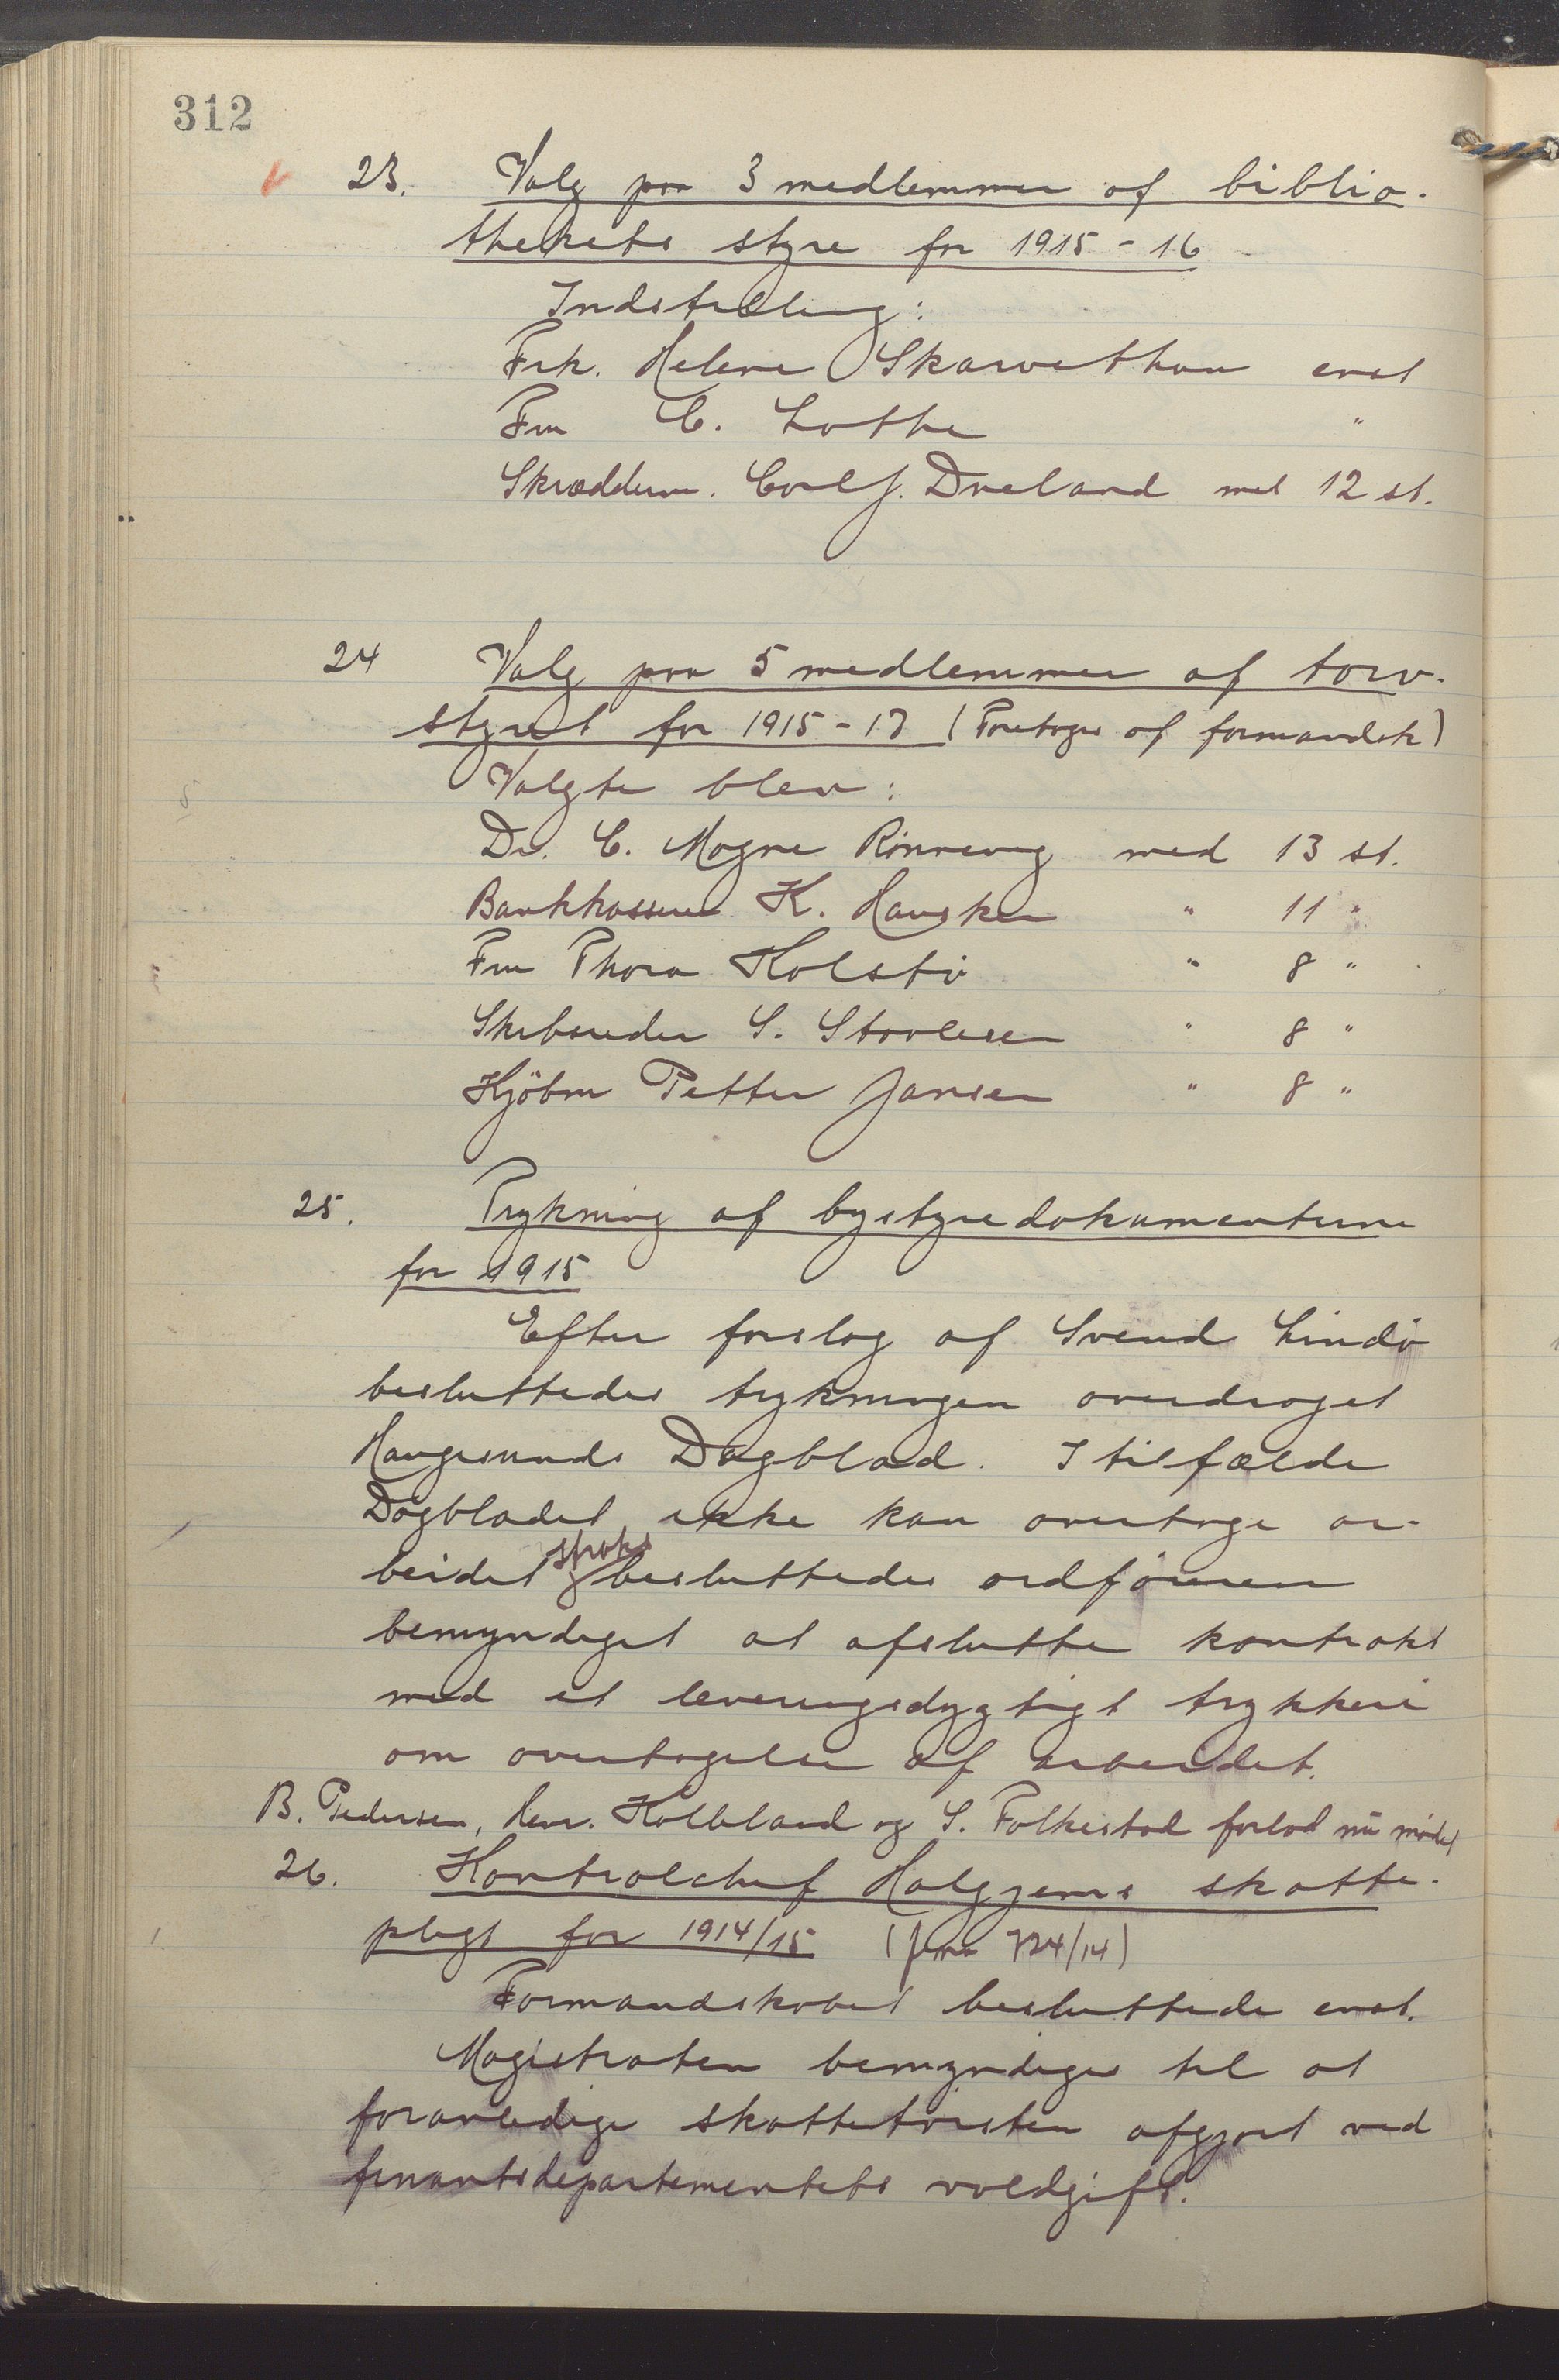 312
23. Valg paa 3 medlemmer af biblio-
thekets styre for 1915-16
Indstilling:
Frk. Helene Skarvethun enst
Fru C. Lothe "
Skræddrm. Carl J. Dueland med 12 st.
24 Valg paa 5 medlemmer af torv-
styret for 1915-17 (Foretages af formandsk)
Valgte blev:
Dr. C. Magne Rönnevig med 13 st.
Bankkasserer K. Hausken " 11 "
Fru Thora Holstö " 8 "
Skibsreder S. Stolesen " 8 "
Kjöbm Petter Jansen " 8 "
25. Trykning af bystyredokumenterne
for 1915
Efter forslag af Svend Lindö
besluttedes trykningen overdraget
Haugesunds Dagblad. I tilfælde
Dagbladet ikke kan overtage ar-
beidet straks besluttedes ordföreren
bemyndiget at afslutte kontrakt
med et leveringsdygtigt trykkeri
om overtagelse af arbeidet.
B. Pedersen, Henr. Kolbland og S. Falkestad forlod nu mödet
26. Kontrolchef Halgjems skatte-
pligt for 1914/15 (jvnr 724/14)
Formandskabet besluttede enst.
Magistraten bemyndiges til at
foranledige skattetvisten afgjort ved
finantsdepartementets voldgift.